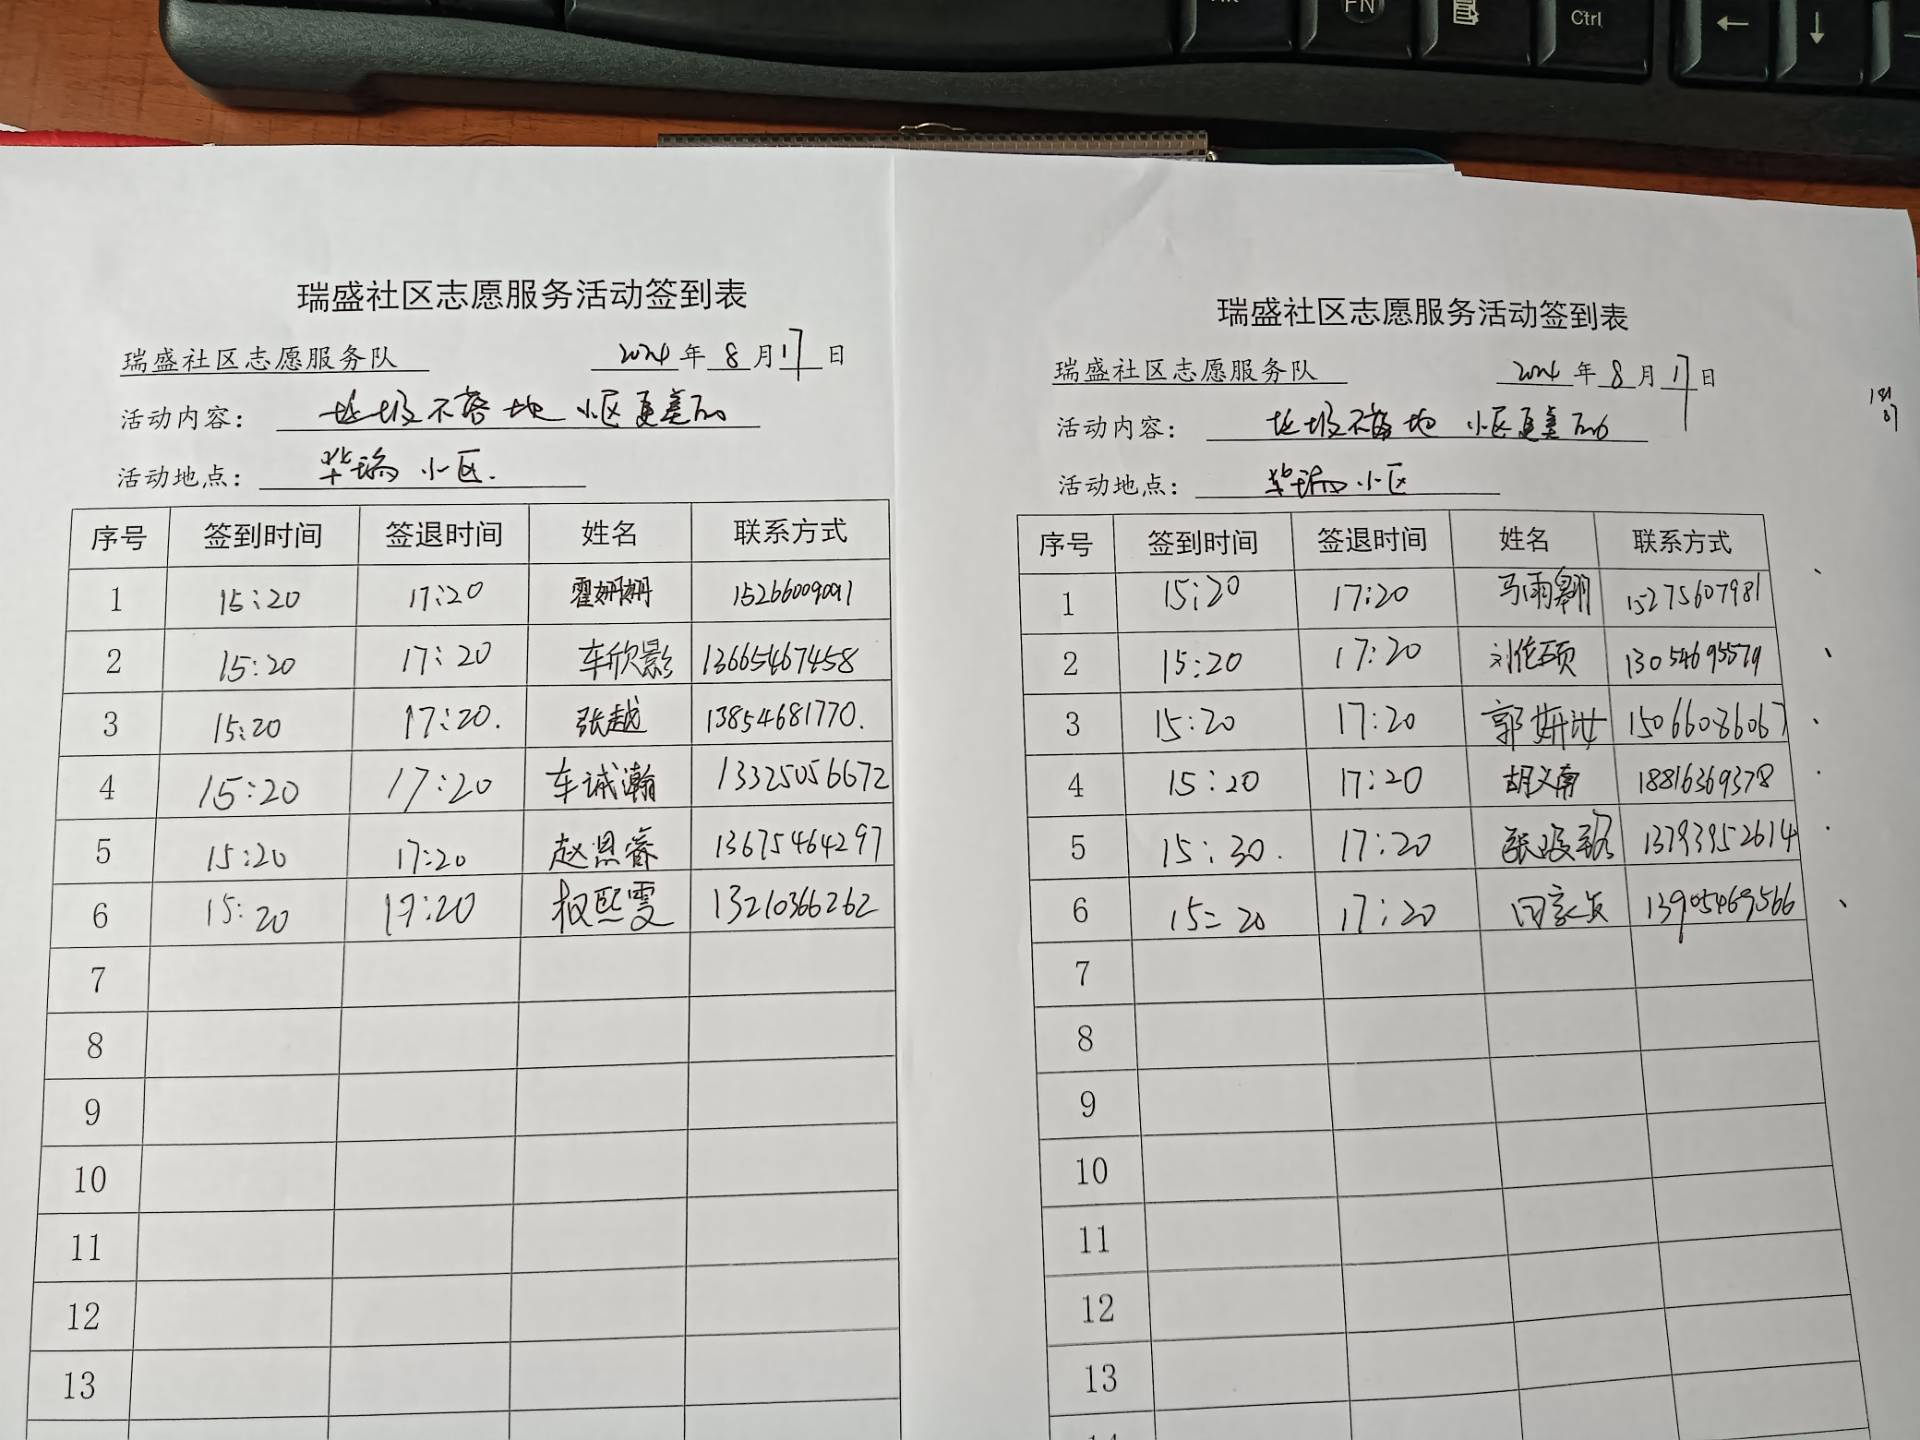 FN
Ctrl
←
↓
瑞盛社区志愿服务活动签到表
瑞盛社区志愿服务队 2024 年 8 月 17 日
活动内容： 垃圾不落地 小区更美丽
活动地点： 华瑞小区.
序号 签到时间 签退时间 姓名 联系方式
1 15:20 17:20 霍姗姗 15266009091
2 15:20 17:20 车欣影 13665467458
3 15:20 17:20. 张越 13854681770.
4 15:20 17:20 车诚瀚 13325056672
5 15:20 17:20 赵恩睿 13675464297
6 15:20 17:20 权熙雯 13210366262
7
8
9
10
11
12
13
瑞盛社区志愿服务活动签到表
瑞盛社区志愿服务队 2024 年 8 月 17 日
活动内容： 垃圾不落地 小区更美丽
活动地点： 华瑞小区
序号 签到时间 签退时间 姓名 联系方式
1 15:20 17:20 马雨翱 15275607981
2 15:20 17:20 刘佗硕 13054695579
3 15:20 17:20 郭妍汝 15066086067
4 15:20 17:20 胡义南 18816369378
5 15:30. 17:20 13793952614
6 15:20 17:20 田家贞 13905469566
7
8
9
10
11
12
13